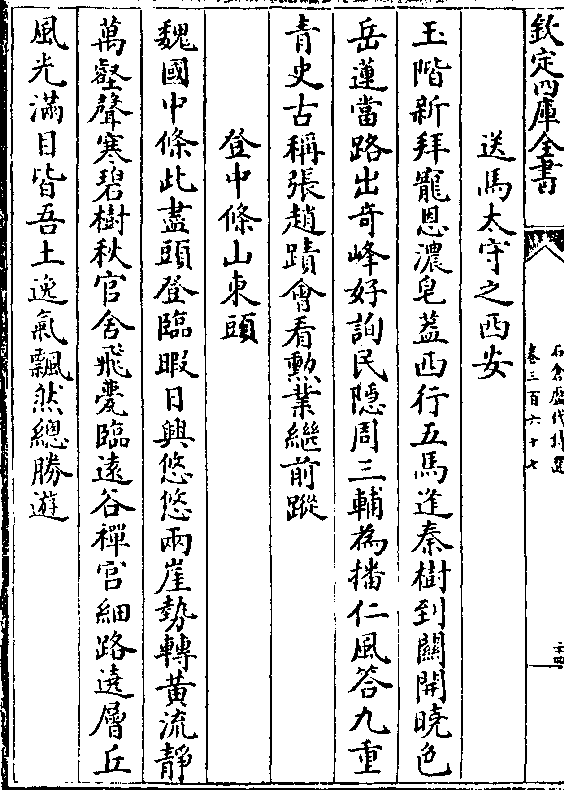 欽定四庫全書
石倉歷代詩選
卷三百六十七
二十四
送馬太守之西安
玉階新拜寵恩濃皂蓋西行五馬逢秦樹到關開曉色
岳蓮當路出奇峰好詢民隱周三輔為播仁風答九重
青史古稱張趙蹟會看勲業繼前蹤
登中條山東頭
魏國中條此盡頭登臨暇日興悠悠兩崖勢轉黃流静
萬壑聲寒碧樹秋官舍飛甍臨遠谷禪宫細路遶層丘
風光滿目皆吾土逸氣飄然總勝遊